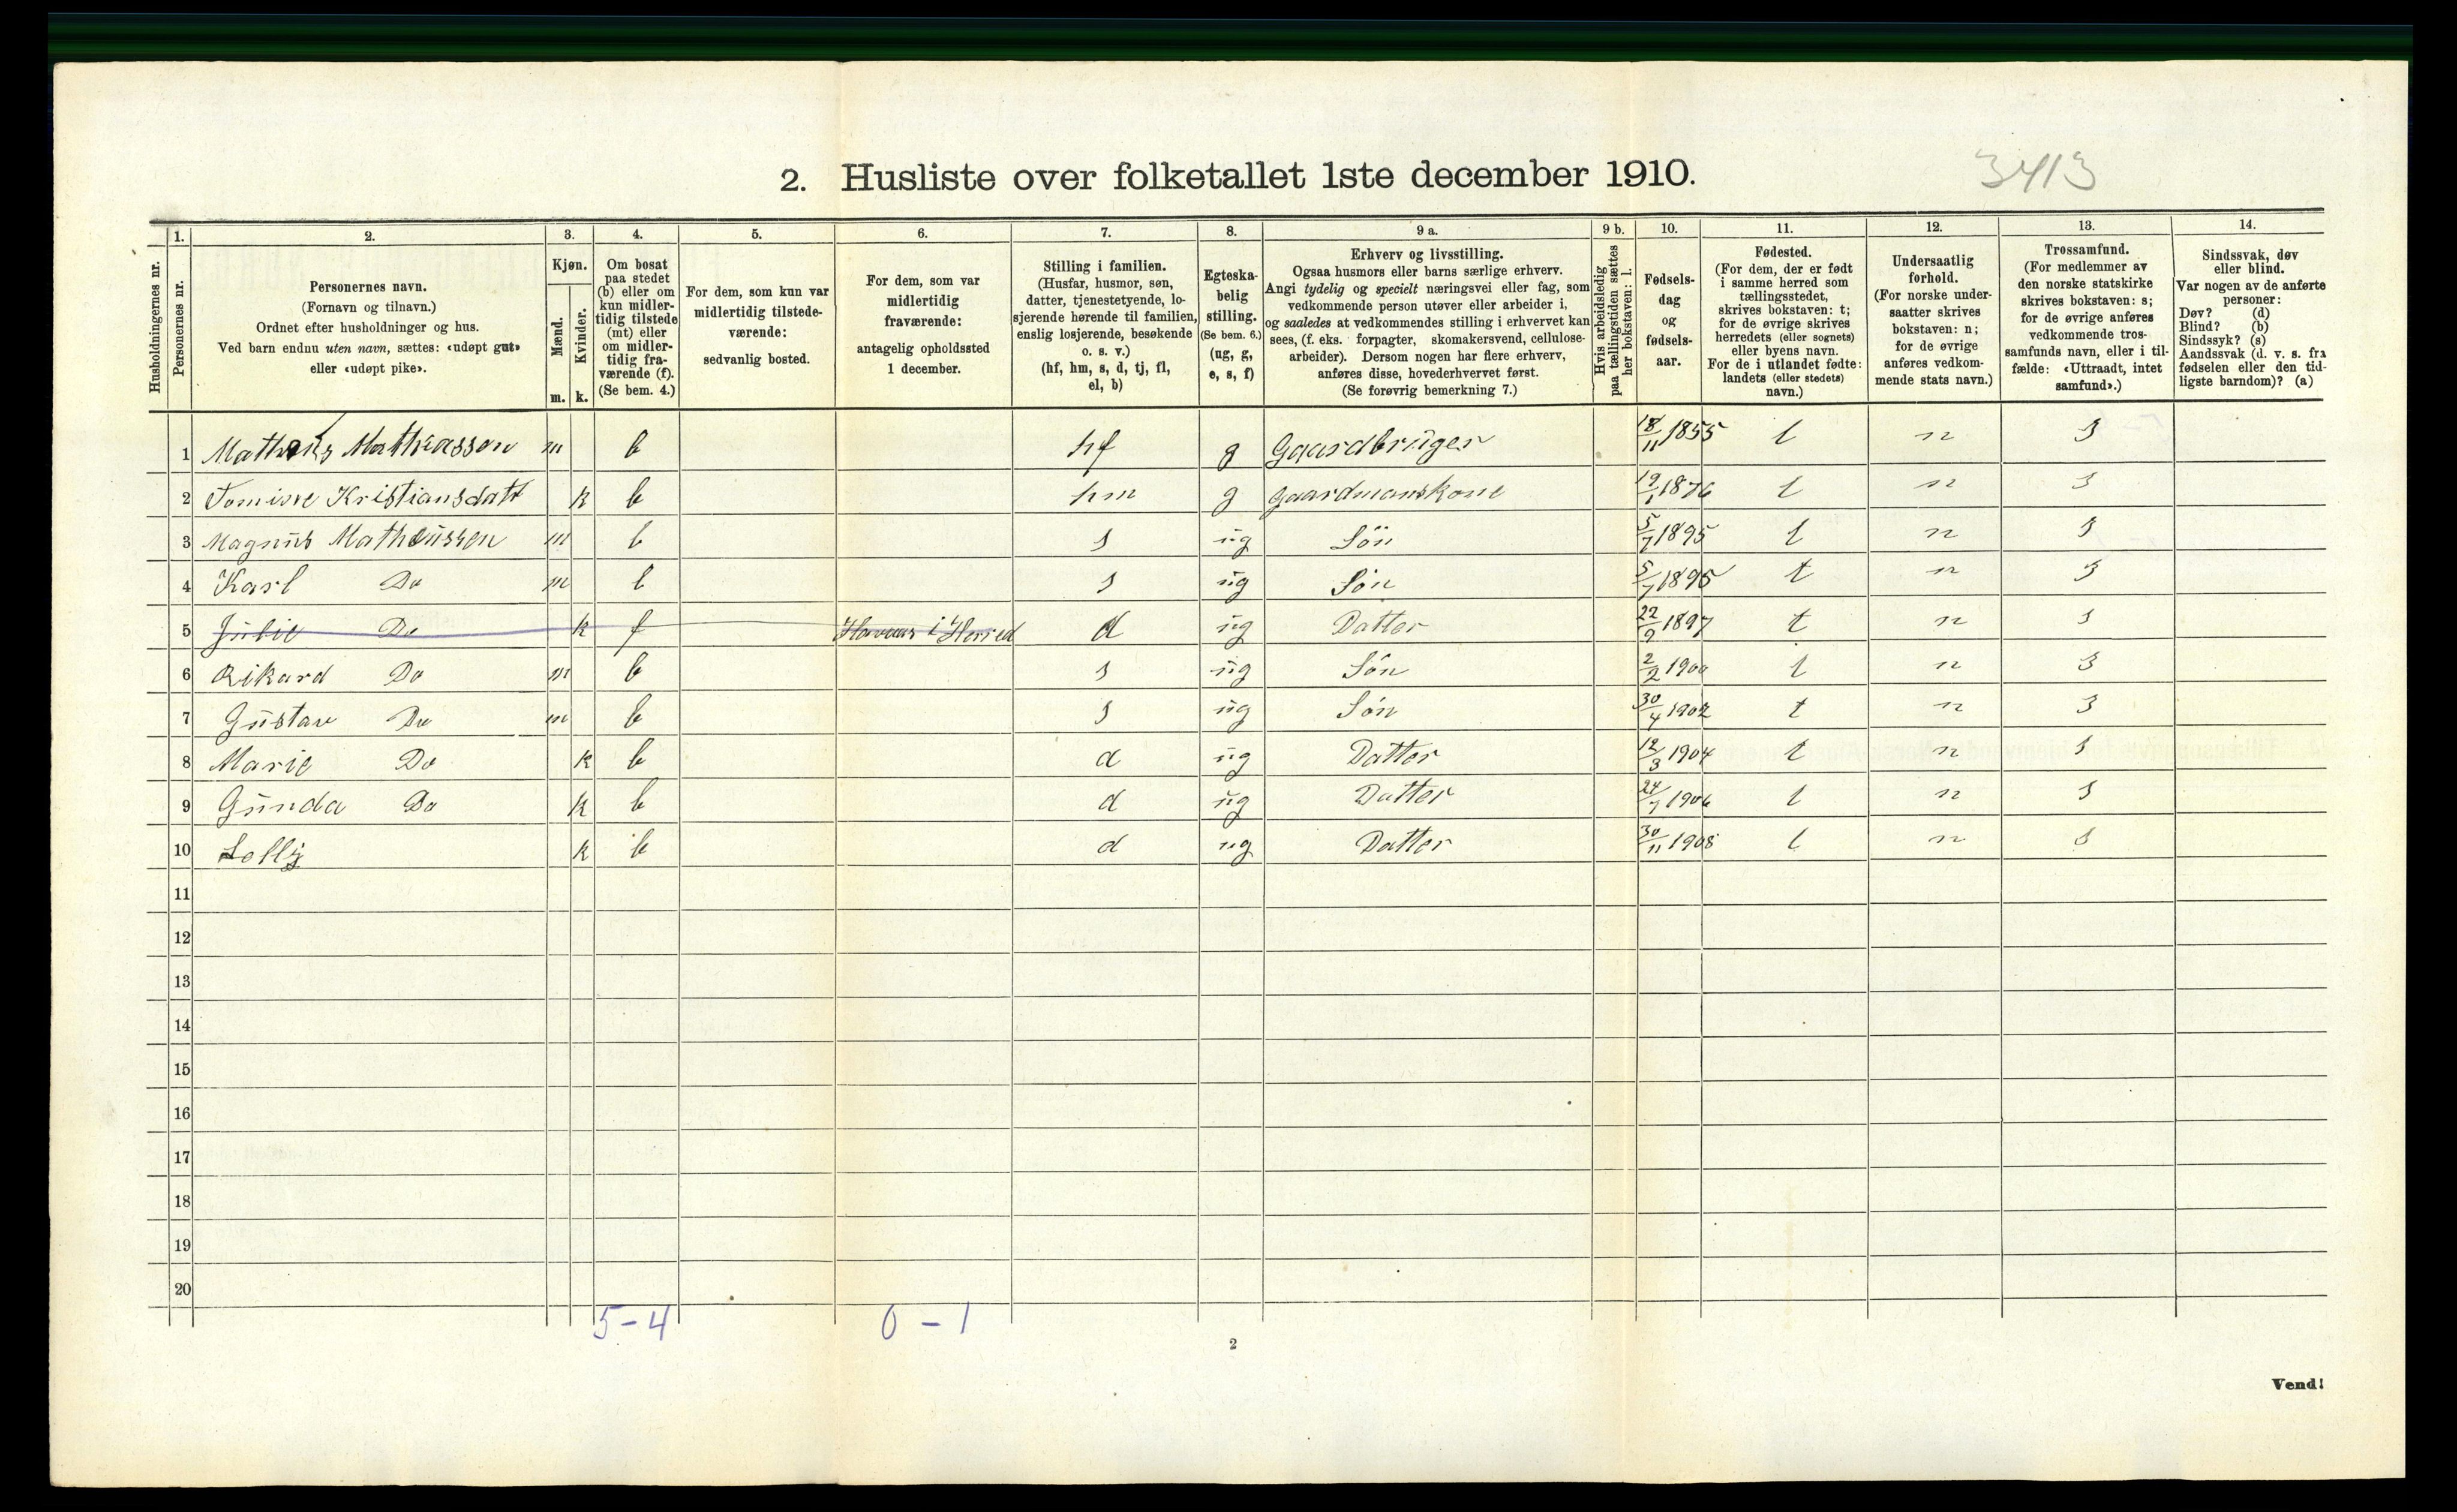 3413
2. Husliste over folketallet 1ste december 1910.
Husholdningernes nr.
1. Personernes nr.
2. Personernes navn.
(Fornavn og tilnavn.)
Ordnet efter husholdninger og hus.
Ved barn endnu uten navn, sættes: «udøpt gut»
eller «udøpt pike».
3. Kjøn.
Mænd. m.
Kvinder. k.
4. Om bosat
paa stedet
(b) eller om
kun midler-
tidig tilstede
(mt) eller
om midler-
tidig fra-
værende (f).
(Se bem. 4.)
5. For dem, som kun var
midlertidig tilstede-
værende:
sedvanlig bosted.
6. For dem, som var
midlertidig
fraværende:
antagelig opholdssted
1 december.
7. Stilling i familien.
(Husfar, husmor, søn,
datter, tjenestetyende, lo-
sjerende hørende til familien,
enslig losjerende, besøkende
o. s. v.)
(hf, hm, s, d, tj, fl,
el, b)
8. Egteska-
belig
stilling.
(Se bem. 6.)
(ug, g,
e, s, f)
9 a. Erhverv og livsstilling.
Ogsaa husmors eller barns særlige erhverv.
Angi tydelig og specielt næringsvei eller fag, som
vedkommende person utøver eller arbeider i,
og saaledes at vedkommendes stilling i erhvervet kan
sees, (f. eks. forpagter, skomakersvend, cellulose-
arbeider). Dersom nogen har flere erhverv,
anføres disse, hovederhvervet først.
(Se forøvrig bemerkning 7.)
9 b. Hvis arbeidsledig
paa tællingstiden sættes
her bokstaven: l.
10. Fødsels-
dag
og
fødsels-
aar.
11. Fødested.
(For dem, der er født
i samme herred som
tællingsstedet,
skrives bokstaven: t;
for de øvrige skrives
herredets (eller sognets)
eller byens navn.
For de i utlandet fødte:
landets (eller stedets)
navn.)
12. Undersaatlig
forhold.
(For norske under-
saatter skrives
bokstaven: n;
for de øvrige
anføres vedkom-
mende stats navn.)
13. Trossamfund.
(For medlemmer av
den norske statskirke
skrives bokstaven: s;
for de øvrige anføres
vedkommende tros-
samfunds navn, eller i til-
fælde: «Uttraadt, intet
samfund».)
14. Sindssvak, døv
eller blind.
Var nogen av de anførte
personer:
Døv? (d)
Blind? (b)
Sindssyk? (s)
Aandssvak (d. v. s. fra
fødselen eller den tid-
ligste barndom)? (a)
1 Mathiasson m b hf g Gaardbruger 18/11 1855 t n s
2 Kristiansdatt k b hm g Gaardmanskone 19/1 1876 t n s
3 Magnus Matheussen m b s ug Søn 5/7 1895 t n s
4 Karl Do m b s ug Søn 5/7 1895 t n s
5 Julie Do k f i Herred d ug Datter 22/9 1897 t n s
6 Rikard Do m b s ug Søn 2/2 1900 t n s
7 Gustav Do m b s ug Søn 30/4 1902 t n s
8 Marie Do k b d ug Datter 12/3 1904 t n s
9 Gunda Do k b d ug Datter 24/7 1906 t n s
10 Lolly k b d ug Datter 30/11 1908 t n s
11
12
13
14
15
16
17
18
19
20
5-4 0-1
2
Vend!